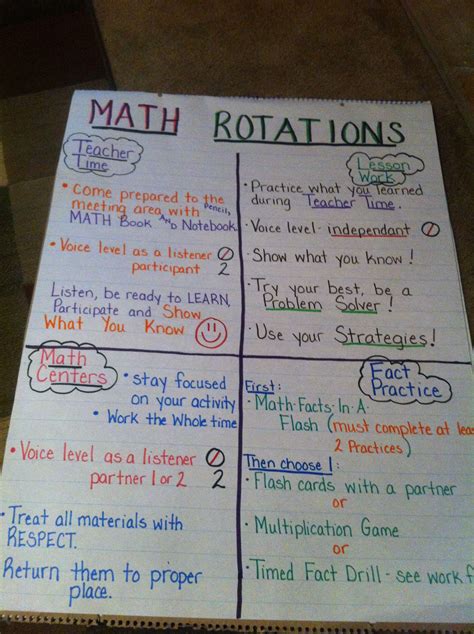 MATH ROTATIONS
Teacher
Time
• Come prepared to the
meeting area with Pencil,
MATH Book AND Notebook
• Voice level as a listener 0
participant 2
Listen, be ready to LEARN,
Participate and Show
What You Know
Lesson
Work
• Practice what you learned
during Teacher Time.
• Voice level - independant 0
• Show what you Know!
• Try your best, be a
Problem Solver!
• Use your Strategies!
Math
Centers
• stay focused
on your activity
• Work the Whole time
• Voice level as a listener 0
partner 1 or 2 2
• Treat all materials with
RESPECT.
Return them to proper
place.
Fact
Practice
First:
• Math-Facts-In-A-
Flash (must complete at leas
2 Practices)
Then choose 1:
• Flash cards with a partner
or
• Multiplication Game
or
• Timed Fact Drill - see work f